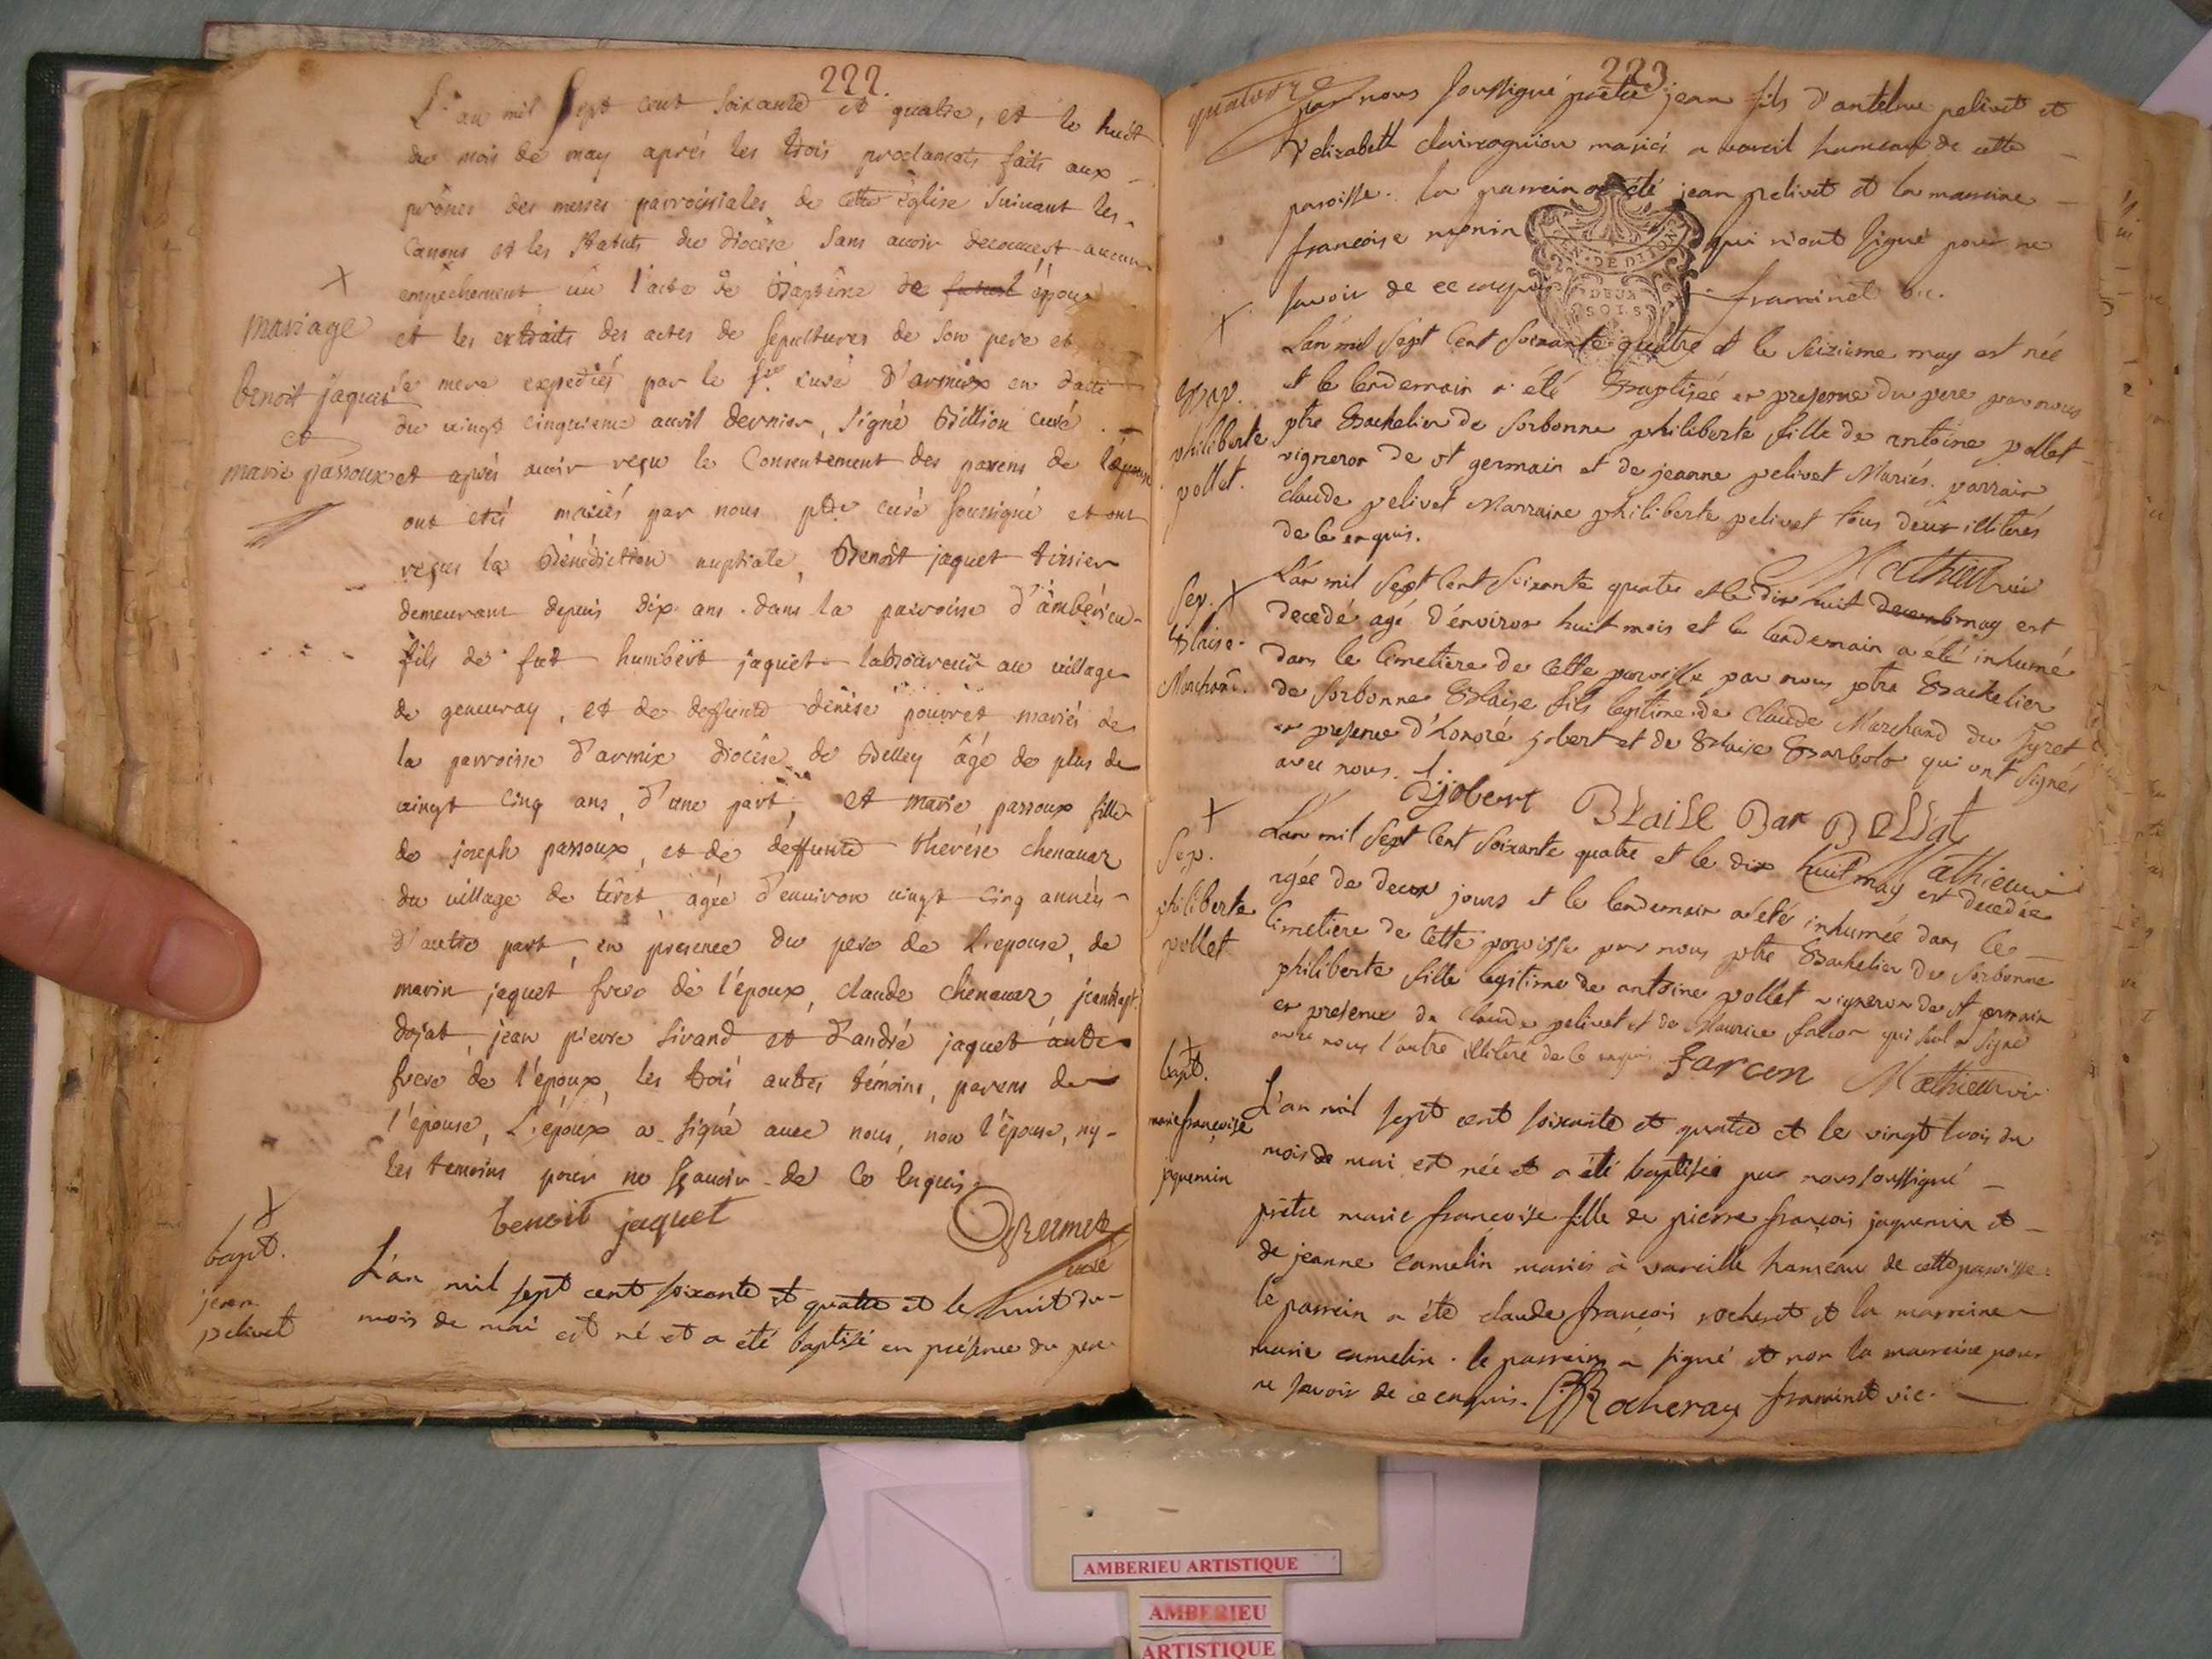 222.
L'an mil sept cent soixante et quatre, et le huit
du mois de may aprés les trois proclamats faits aux
prônes des messes parroissiales de cette Eglise suivant les
canons et les statuts du diocèse sans avoir decouvert aucun
empêchement vu l'acte de Baptême de futur époux
et les extraits des actes de sepultures de son pere et
mere expediés par le sr curé d'armix en datte
du vingt cinquieme avril dernier, signé Billion curé.
et après avoir reçu le Consentement des parens de l'épouse
ont etés mariés par nous ptre curé soussigné et ont
reçus la Bénédiction nuptiale, Benoît jaquet tissier
demeurant depuis dix ans dans la parroisse d'ambérieu
fils de fut humbert jaquet laboureur au village
de genevray, et de deffunte denise pourret mariés de
la parroisse d'armix diocèse de Belley âgé de plus de
vingt cinq ans, d'une part, et marie passoux fille
de joseph passoux, et de deffunte therése chenavaz
du village de tiret, âgée d'environ vingt cinq années
d'autre part, en presence du pere de l'epouse, de
marin jaquet frere de l'époux, claude chenavaz, jean bapt.
dojat, jean pierre sivand et d'andré jaquet autre
frere de l'époux, les trois autres témoins, parens de
l'épouse, L'époux a signé avec nous, non l'épouse, ny
les temoins pour ne sçavoir de ce enquis
benoit jaquet
curé
mariage
benoit jaquet
et
marie passoux
bapt.
jean
pelivet
L'an mil sept cent soixante et quatre et le huit du
mois de mai est né et a été baptisé en présence du pere
223
quatorze
par nous soussigné prêtre jean fils d'antelme pelivet et
d'elizabeth mariés a vareil hameau de cette
paroisse. le parrein a été jean pelivet et la marreine
francoise monin qui n'ont signé pour ne
savoir de ce enquis framinet vic.
GEN. DE DIJON
DEUX
SOLS
Bap.
philiberte
pollet.
L'an mil sept cent soixante quatre et le seizieme may est née
et le lendemain a été Baptisée en presence du pere par nous
ptre Bachelier de sorbonne philiberte fille de antoine pollet
vigneron de st germain et de jeanne pelivet Mariés. parrain
claude pelivet Marraine philiberte pelivet tous deux illiterés
de ce enquis.
Mathieu vic
Sep.
Blaise
Marchand.
L'an mil sept cent soixante quatre et le dix huit decemb may est
decedé agé d'environ huit mois et le lendemain a été inhumé
dans le Cimetiere de cette paroisse par nous ptre Bachelier
de sorbonne Blaise fils legitime de Claude Marchand du Tyret
en presence d'honoré jobert et de Blaise Barbolat qui ont signés
avec nous.
hjobert BLaiSe Bar BoLLat
Mathieu vic
Sep.
philiberte
pollet
L'an mil sept cent soixante quatre et le dix huit may est decedée
agée de deux jours et le lendemain a été inhumée dans le
Cimetiere de cette paroisse par nous ptre Bachelier de sorbonne
philiberte fille legitime de antoine pollet vigneron de st germain
en presence de Claude pelivet et de Maurice falcon qui seul a signé
avec nous l'autre illiteré de ce enquis farcon Mathieu vic
bapt.
marie françoise
jaquemin
L'an mil sept cent soixante et quatre et le vingt trois du
mois de mai est née et a été baptisée par nous soussigné
prêtre marie françoise fille de pierre françois jaquemin et
de jeanne camelin mariés à vareille hameau de cette paroisse.
le parrein a été claude françois rocheret et la marreine
marie camelin. le parrein a signé et non la marreine pour
ne savoir de ce enquis. Rocheray framinet vic.
AMBERIEU ARTISTIQUE
AMBERIEU
ARTISTIQUE